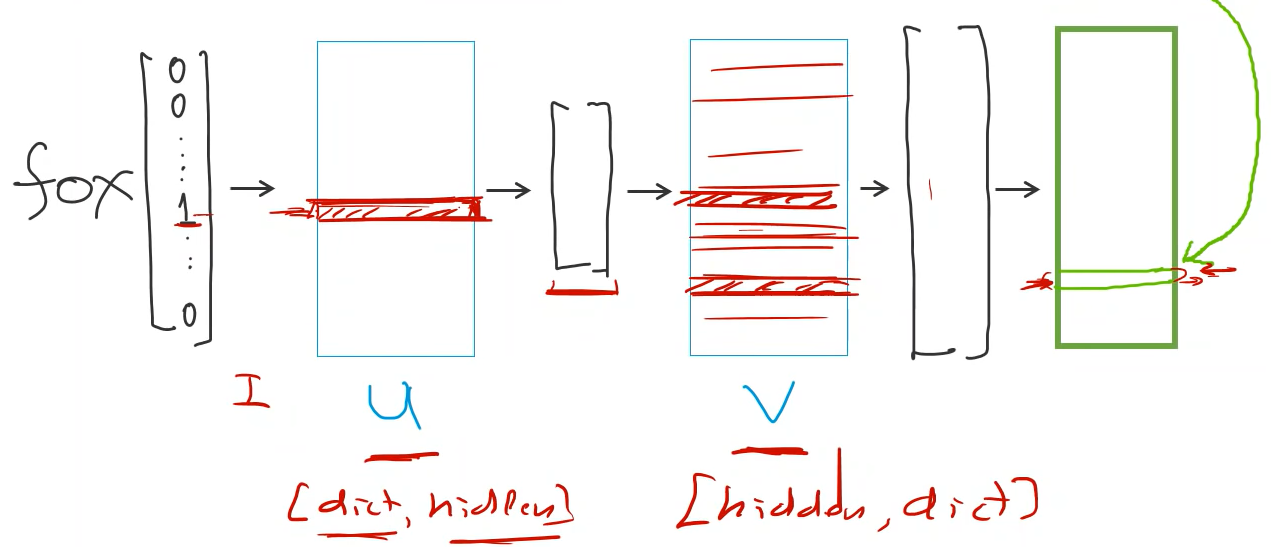 fox
0
0
1
0
I
U
V
[dict, hidden]
[hidden, dict]